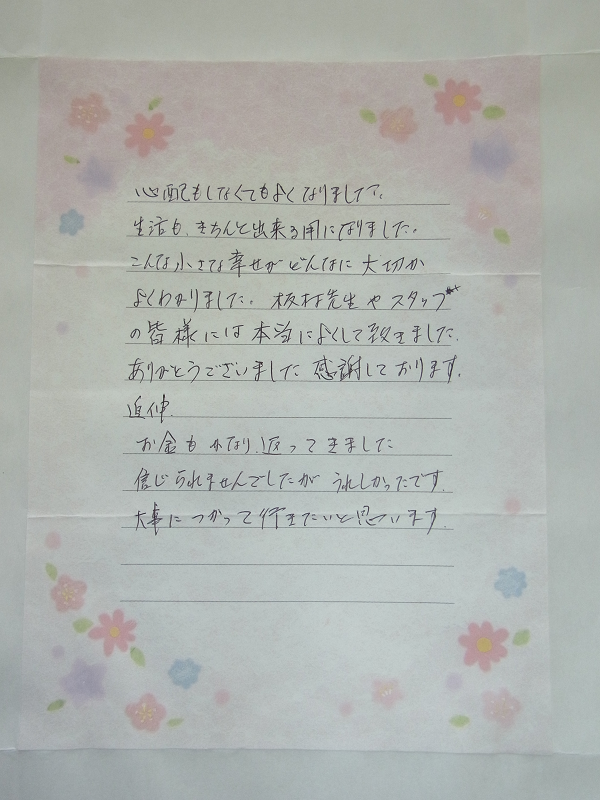 心配もしなくてもよくなりました。
生活も、きちんと出来る用になりました。
こんな小さな幸せがどんなに大切か
よくわかりました。板村先生やスタッフ
の皆様には本当によくして致きました。
ありがとうございました 感謝しております。
追伸
お金もかなり返ってきました
信じられませんでしたが うれしかったです。
大事につかって行きたいと思います。